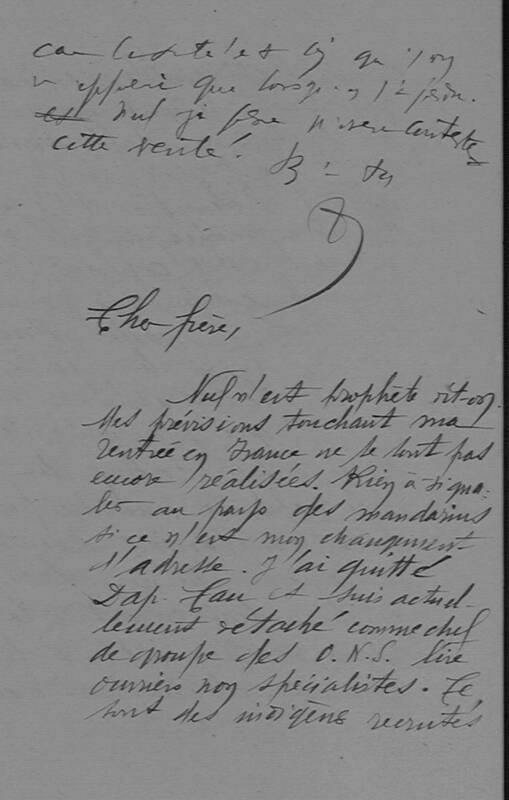 que
que lorsqu'on l'a
et nul je n'ose contester
cette vérité.
Cher frère,
Nul n'est prophète dit-on.
Mes prévisions touchant ma
rentrée en France ne se sont pas
encore réalisées. Rien à signa-
ler au pays des mandarins
si ce n'est mon changement
d'adresse. J'ai quitté
Dap-Cau et suis actuel-
lement détaché comme chef
de groupe des O.N.S. lire
ouvriers non spécialistes. Ce
sont des indigènes recrutés